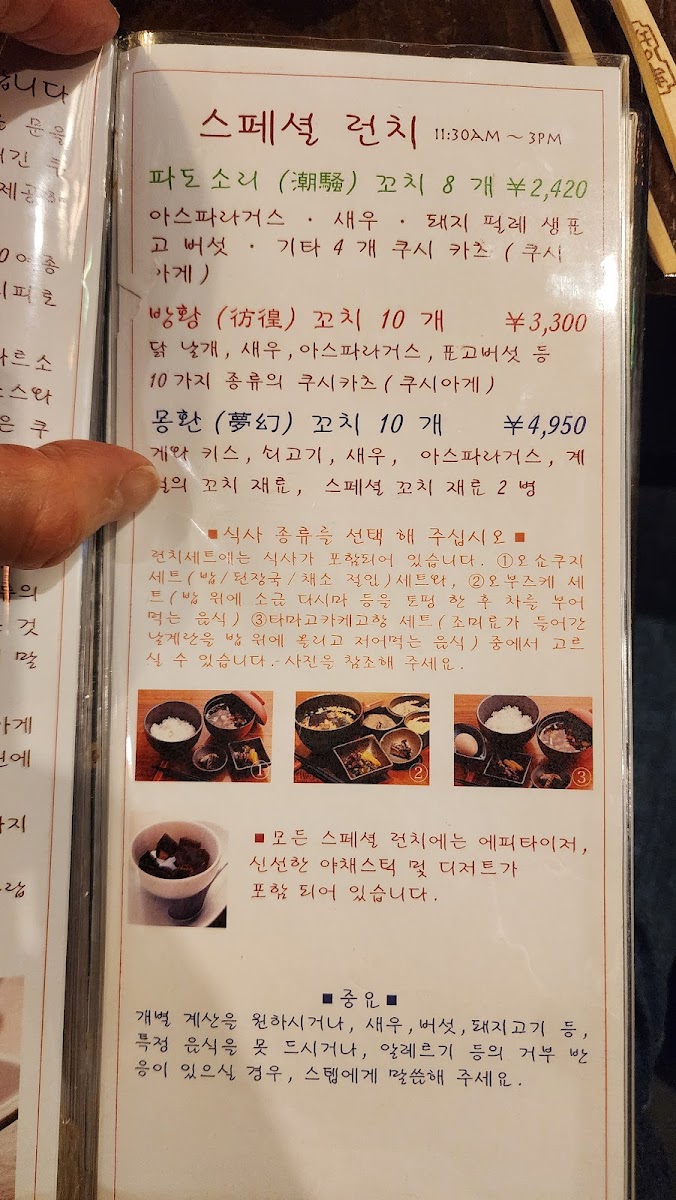 습니다
문을
긴 쿠
제공하
0여종
시피로
다르소
소스와
은 쿠
들의
것
말
아게
에
까지
스페셜 런치 11:30AM ~ 3PM
파도소리 (潮騒) 꼬치 8 개 ¥2,420
아스파라거스 · 새우 · 돼지 필레 생표
고 버섯 · 기타 4 개 쿠시 카츠 ( 쿠시
아게 )
방황 (彷徨) 꼬치 10 개 ¥3,300
닭 날개, 새우, 아스파라거스, 표고버섯 등
10 가지 종류의 쿠시카츠 ( 쿠시아게 )
몽환 (夢幻) 꼬치 10 개 ¥4,950
게와 키스, 쇠고기, 새우, 아스파라거스, 계
절의 꼬치 재료, 스페셜 꼬치 재료 2 병
■ 식사 종류를 선택 해 주십시오 ■
런치세트에는 식사가 포함되어 있습니다. ①오쇼쿠지
세트 ( 밥/된장국/채소 절인 ) 세트와, ②오부즈케 세
트 ( 밥 위에 소금 다시마 등을 토핑 한 후 차를 부어
먹는 음식 ) ③타마고카케고항 세트 ( 조미료가 들어간
날계란을 밥 위에 올리고 저어먹는 음식 ) 중에서 고르
실 수 있습니다.- 사진을 참조해 주세요.
① ② ③
■ 모든 스페셜 런치에는 에피타이저,
신선한 야채스틱 및 디저트가
포함 되어 있습니다.
■ 중요 ■
개별 계산을 원하시거나, 새우, 버섯, 돼지고기 등,
특정 음식을 못 드시거나, 알레르기 등의 거부 반
응이 있으실 경우, 스텝에게 말씀해 주세요.